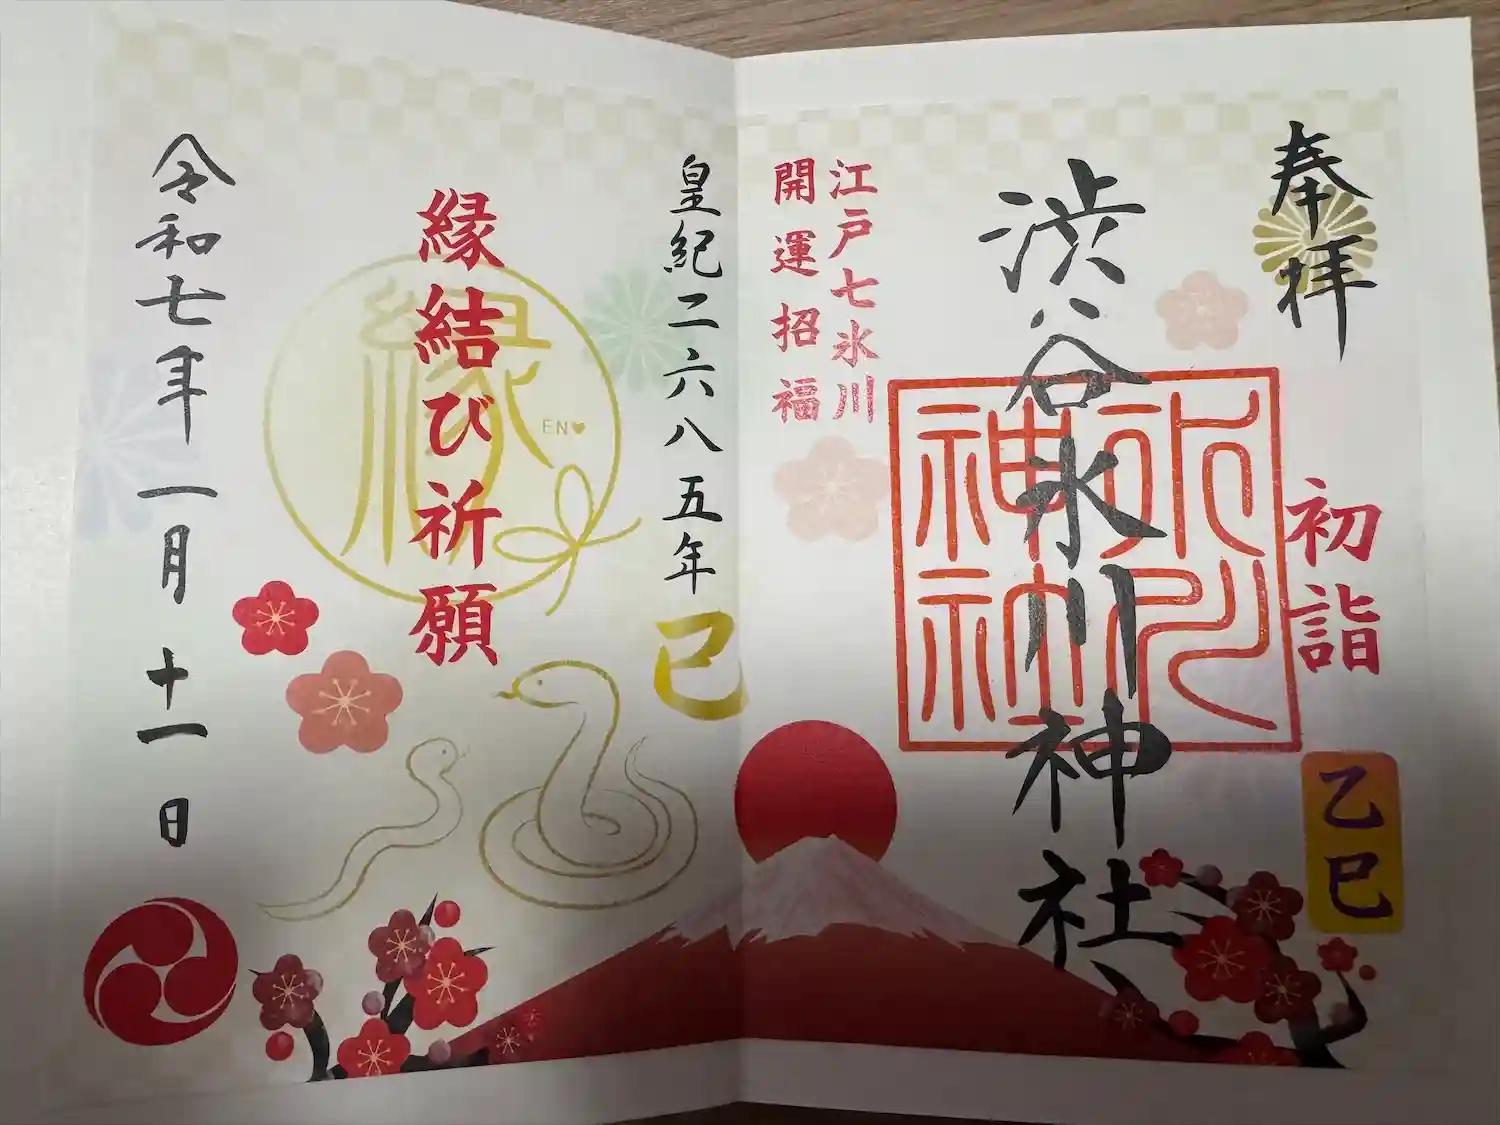 奉拝
初詣
乙巳
渋谷氷川神社
氷川
神社
江戸七氷川
開運招福
皇紀二六八五年
巳
縁結び祈願
縁
EN♥
令和七年一月十一日